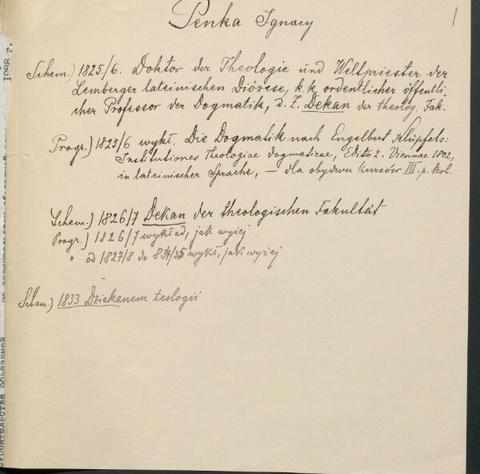 Penka Ignacy
1
Schem.) 1825/6. Doktor der Theologie und Weltpriester der
Lemberger lateinischen Diözese, k. k. ordentlicher öffentli-
cher Professor der Dogmatik, d. Z. Dekan der theolog. Fak.
Progr.) 1825/6 wykł. Die Dogmatik nach Engelbert Klüpfels:
Institutiones Theologiae dogmaticae, Editio 2. Viennae 1802,
in lateinischer Sprache, — dla obydwu kursów III. p. teol.
Schem.) 1826/7 Dekan der theologischen Fakultät
Progr.) 1826/7 wykład, jak wyżej
" od 1827/8 do 834/35 wykł, jak wyżej
Schem.) 1833 Dziekanem teologii